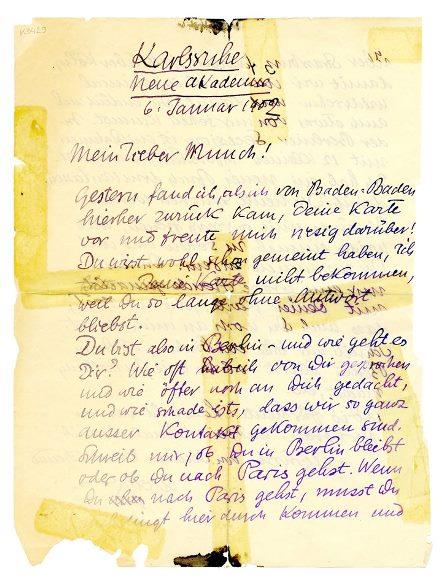 K3429
Karlsruhe
Neue Akademie
6. Januar 1902
Mein lieber Munch!
Gestern fand ich, als ich von Baden-Baden
hierher zurück kam, Deine Karte
vor und freute mich riesig darüber!
Du wirst wohl schon gemeint haben, ich
nicht bekommen,
weil Du so lange ohne Antwort
bliebst.
Du bist also in Berlin - und wie geht es
Dir? Wie oft von Dir gesprochen
und wie öfter noch an Dich gedacht,
und wie schade ists, dass wir so ganz
ausser Kontakt gekommen sind.
Schreib mir, ob Du in Berlin bleibst
oder ob Du nach Paris gehst. Wenn
Du nach Paris gehst, musst Du
hier durch kommen und